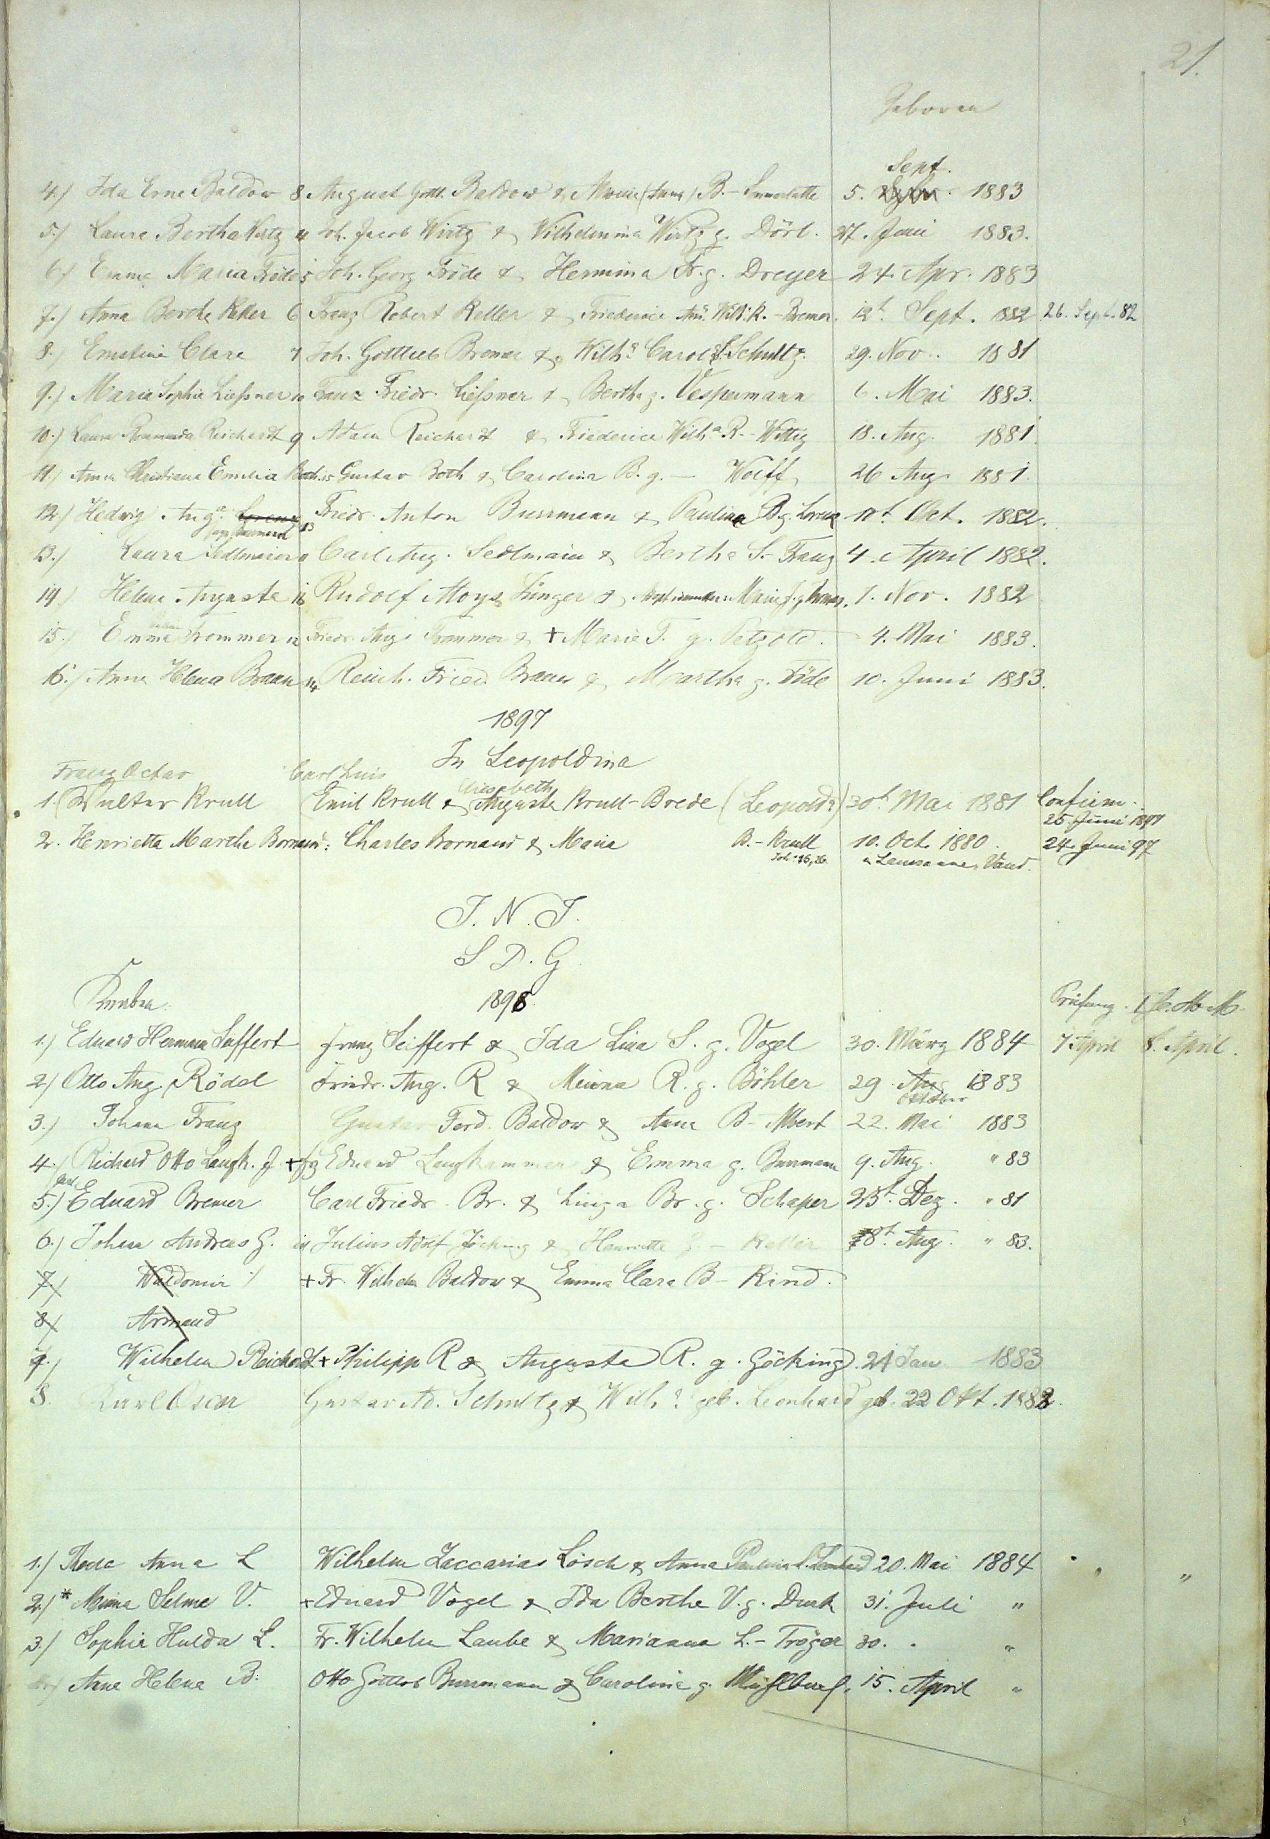 21.
Geboren
Sept.
4.) Ida Erne Baldow 8 August Gott. Baldow & Marie (Anna) B.- 5. 1883
5.) Laura Bertha Wirtz 4 Joh. Jacob Wirtz & Wilhelmina Wirtz g. Dörl. 27. Juni 1883.
6.) Emma Maria Fröde 5 Joh. Georg Fröde & Hermina Fr. g. Dreyer 24. Apr. 1883
7.) Anna Berthe Keller 6 Franz Robert Keller & Friederice K.- Bremer. 12t. Sept. 1882 26. Sept. 82
8.) Ernstine Clare 7 Joh. Gottlieb Bremer & Wilha. Carol. Schultz. 29. Nov. 1881
9.) Maria Sophie Liessner Franz Friedr. Liessner & Bertha g. Vespermann 6. Mai 1883.
10.) Laura Reichardt 9 Adam Reichardt & Friederice Wilha R.- Wettig 18. Aug. 1881
11.) Anna Christiane Emilia Both Gustav Both & Carolina B. g. - Wolff 26 Aug 1881.
12.) Hedwig Auga. 13 Friedr. Anton Burrmann & Paulina B. g. Lorenz 10t. Oct. 1882.
13.) Laura Sedlmaier Carl Aug. Sedlmaier & Bertha S.- Franz 4. April 1882.
14.) Helene Auguste Rudolf Aloys Jünger & Marie 1. Nov. 1882
15.) Emma Trommer 12 Friedr. Aug. Trommer & + Marie T. g. Petzold. 4. Mai 1883.
16.) Anna Helena Braun 14 Reinh. Fried. Braun & Martha g. Föde 10. Juni 1883.
1897
In Leopoldina
Franz Octav Carl Luis Elisabeth
1. Walter Krull Emil Krull & Auguste Krull-Brede (Leopolda) 30t. Mai 1881 Confirm.
25 Juni 1897
2. Henrietta Marthe Bornand. Charles Bornand & Maria B.- Krull 10. Oct. 1880. 24. Juni 97
Joh. 16, 26. Lausanne, Vaud.
J. N. J.
S. D. G
Knaben. 1898. Prüfung.
1.) Eduard Hermann Seiffert Franz Seiffert & Ida Lina S. g. Vogel 30. März 1884 7 April 8. April.
2.) Otto Aug. Rödel Friedr. Aug. R & Minna R. g. Böhler 29. Aug. 1883
October
3.) Johann Franz Gustav Ferd. Baldow & Anna B- Albert 22. Mai 1883
4.) Richard Otto Langh. J + Eduard Langhammer & Emma g. Burrmann 9. Aug. " 83
5.) Carl Eduard Bremer Carl Friedr. Br. & Br. g. Schaper 25t. Dez. " 81
6.) Johann Andreas G. Julius Adolf Göcking & Henriette G - Keller 8t. Aug. " 83.
7.) Waldomir + Fr. Wilhelm Baldow & Emma Clara B- Kind.
8.) Armand
7.) Wilhelm Reichardt + Philipp R & Augusta R. g. Göcking. 24 Jan 1883
8. Karl Oscar Gustav Ad. Schultz & Wilha. geb. Leonhard geb. 22 Okt. 1883.
1.) Theda Anna L Wilhelm Zaccarias Lösch & Anna Paulina L. Leonhard 20. Mai 1884
2.) * Mima Selma V. + Eduard Vogel & Ida Berthe V. g. 31. Juli "
3.) Sophie Hulda L. Fr. Wilhelm Laube & Marianna L.- Tröger 30. . "
Anna Helene B. Otto Gottlob Burrmann & Caroline g. 15. April "